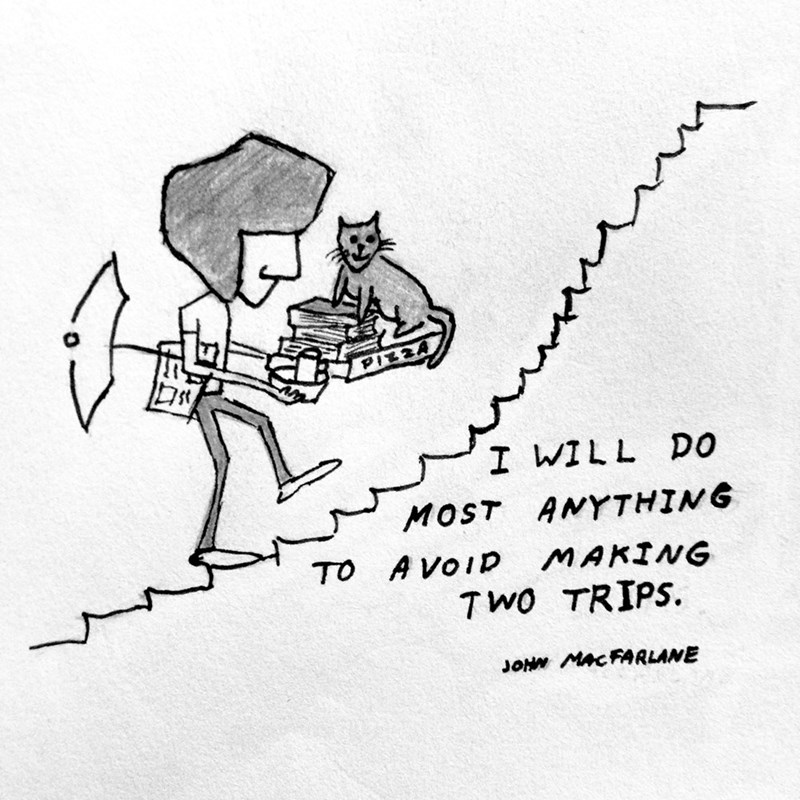 PIZZA
I WILL DO
MOST ANYTHING
TO AVOID MAKING
TWO TRIPS.
JOHN MACFARLANE